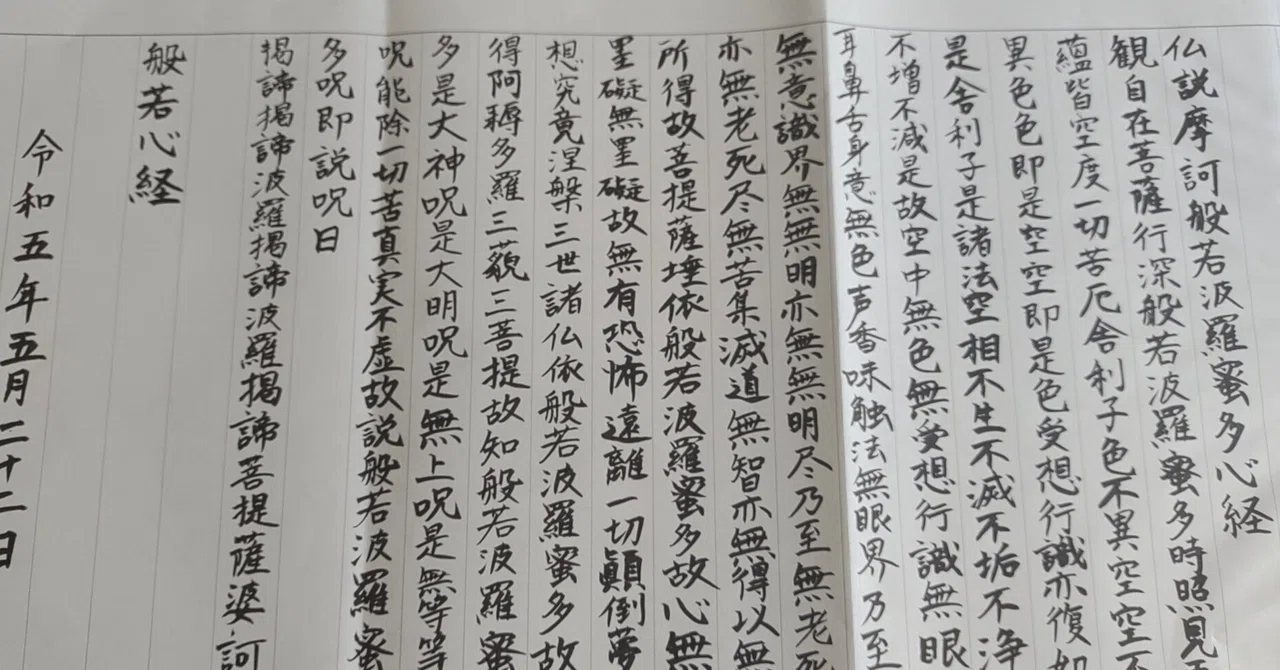 仏説摩訶般若波羅蜜多心経
観自在菩薩行深般若波羅蜜多時照見
蘊皆空度一切苦厄舎利子色不異空空不
異色色即是空空即是色受想行識亦復如
是舎利子是諸法空相不生不滅不垢不浄
不増不減是故空中無色無受想行識無眼
耳鼻舌身意無色声香味触法無眼界乃至
無意識界無無明亦無無明尽乃至無老死
亦無老死尽無苦集滅道無智亦無得以無
所得故菩提薩埵依般若波羅蜜多故心無
罣礙無罣礙故無有恐怖遠離一切顛倒夢
想究竟涅槃三世諸仏依般若波羅蜜多故
得阿耨多羅三藐三菩提故知般若波羅蜜
多是大神呪是大明呪是無上呪是無等等
呪能除一切苦真実不虚故説般若波羅蜜
多呪即説呪日
掲諦掲諦波羅掲諦波羅掲諦菩提薩婆訶
般若心経
令和五年五月二十二日